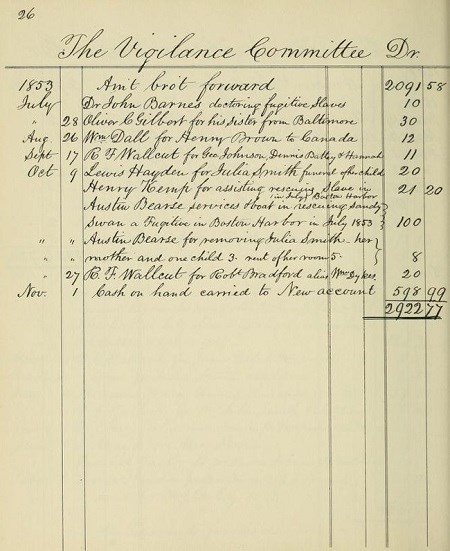 26
The Vigilance Committee Dr.
1853 Am't brot forward 2091 58
July Dr John Barnes doctoring fugitive slaves 10
" 28 Oliver C Gilbert for his sister from Baltimore 30
Aug 26 Wm. Dall for Henry Brown to Canada 12
Sept 17 R. F. Wallcut for Geo Johnson, Dennis Batley & Hannah 11
Oct 9 Lewis Hayden for Julia Smith funeral of her child 20
Henry Kemp for assisting rescuing Slave in 21 20
in July Boston Harbor
Austin Bearse services & boat in rescuing Sandy
Swan a Fugitive in Boston Harbor in July 1853 100
" " Austin Bearse for removing Julia Smith. her
" " mother and one child 3. rent of her room 5. 8
" 27 R. F. Wallcut for Robt Bradford alias Wm Dykes. 20
Nov. 1 Cash on hand carried to New account 598 99
2922 77